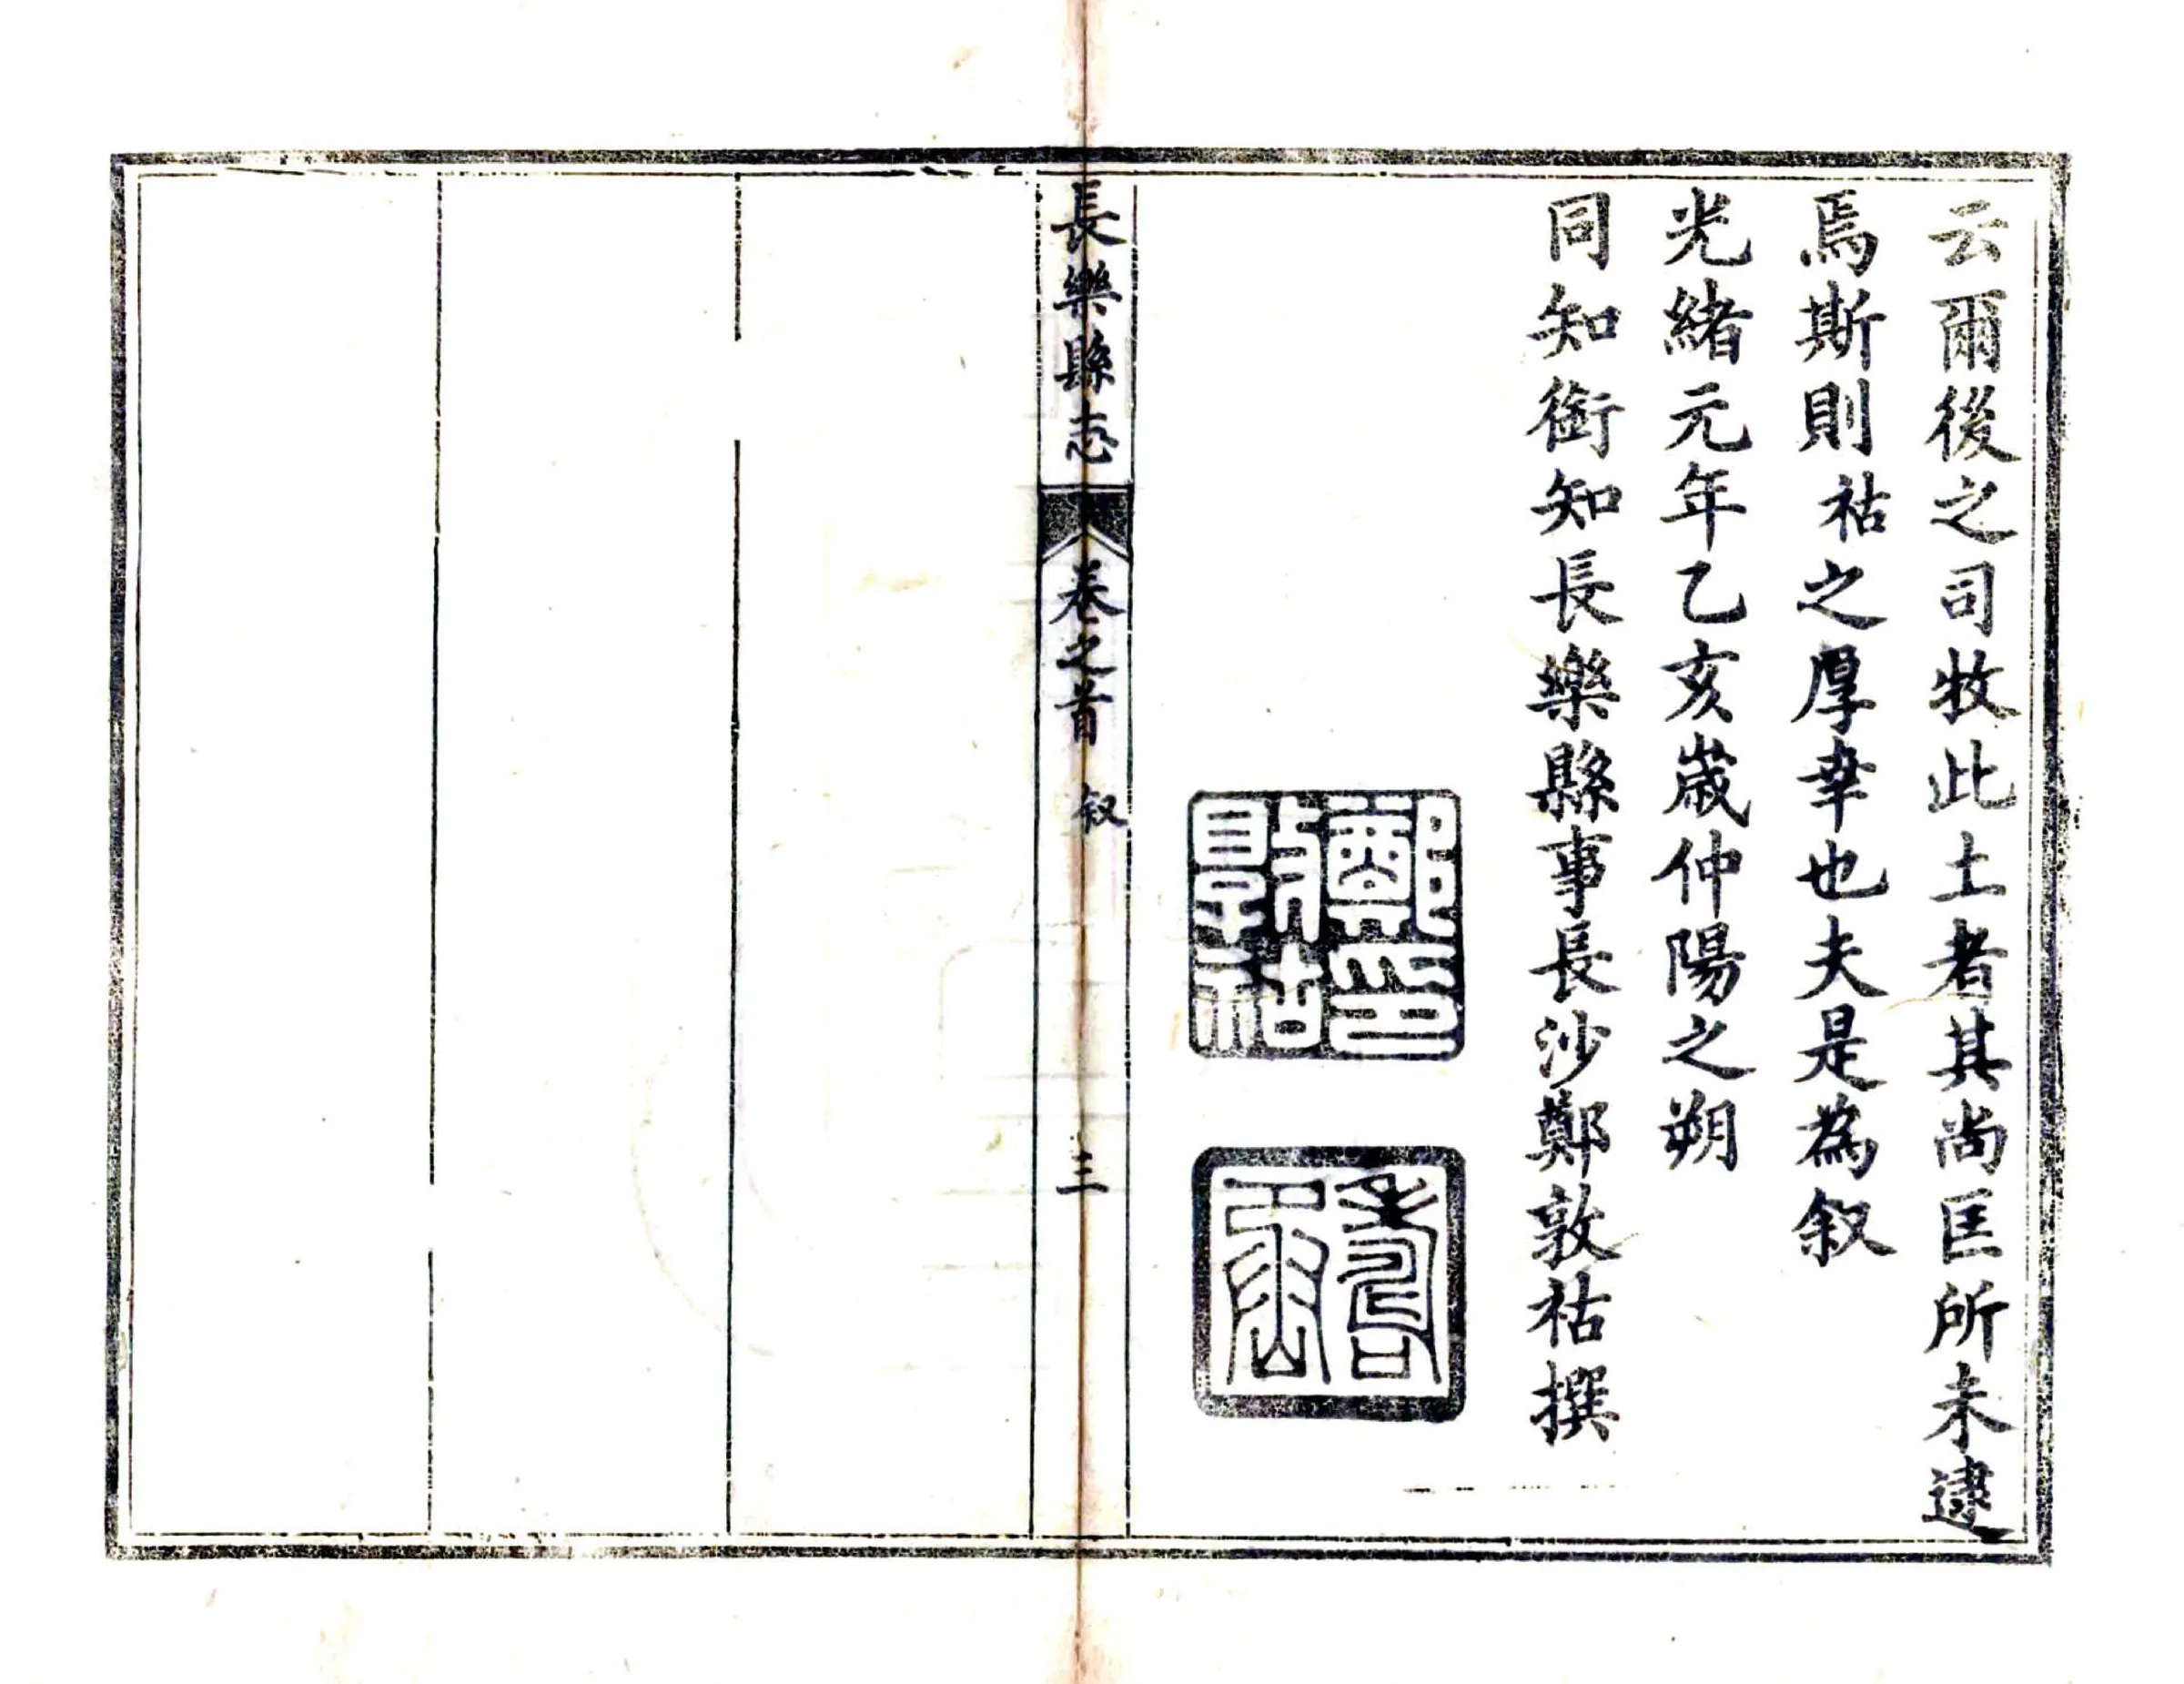 云爾後之司牧此土者其尚匡所未逮
焉斯則祜之厚幸也夫是為叙
光緒元年乙亥歲仲陽之朔
同知銜知長樂縣事長沙鄭敦祜撰
鄭印敦祜
長樂縣志
卷之首
叙
三